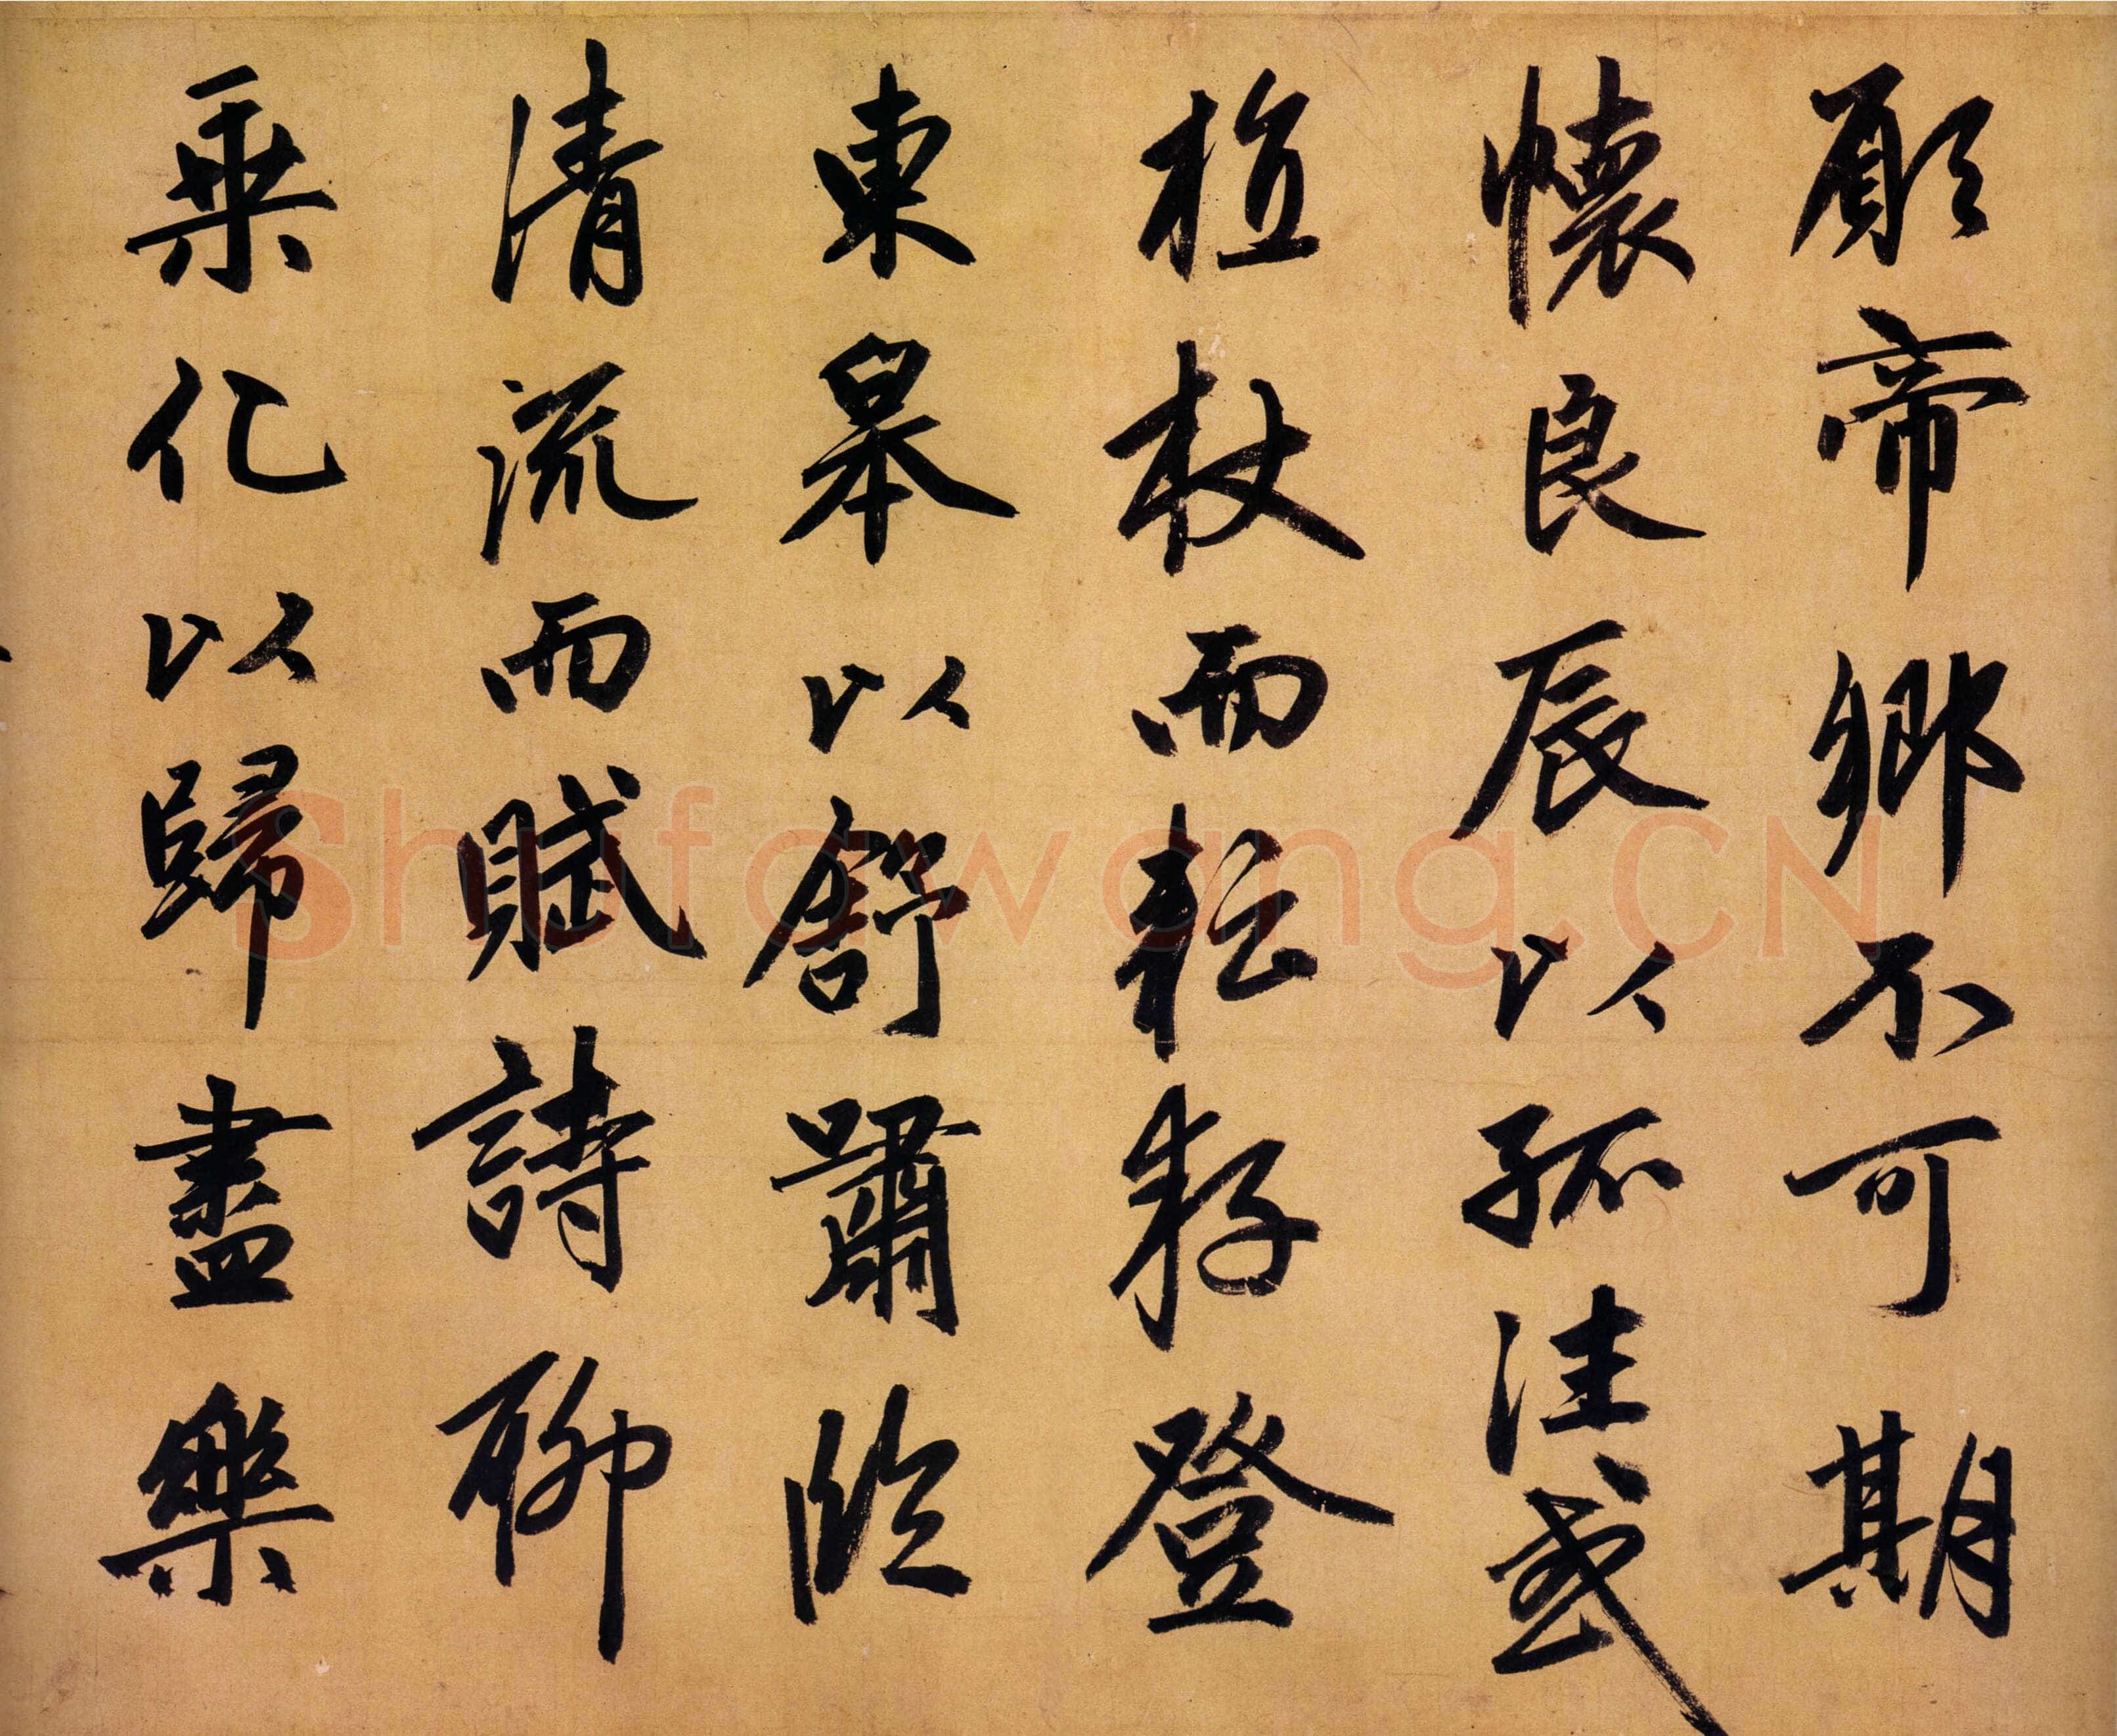 願帝鄉不可期
懷良辰以孤往或
植杖而耘耔登
東皋以舒嘯臨
清流而賦詩聊
乘化以歸盡樂
Shufawang.CN